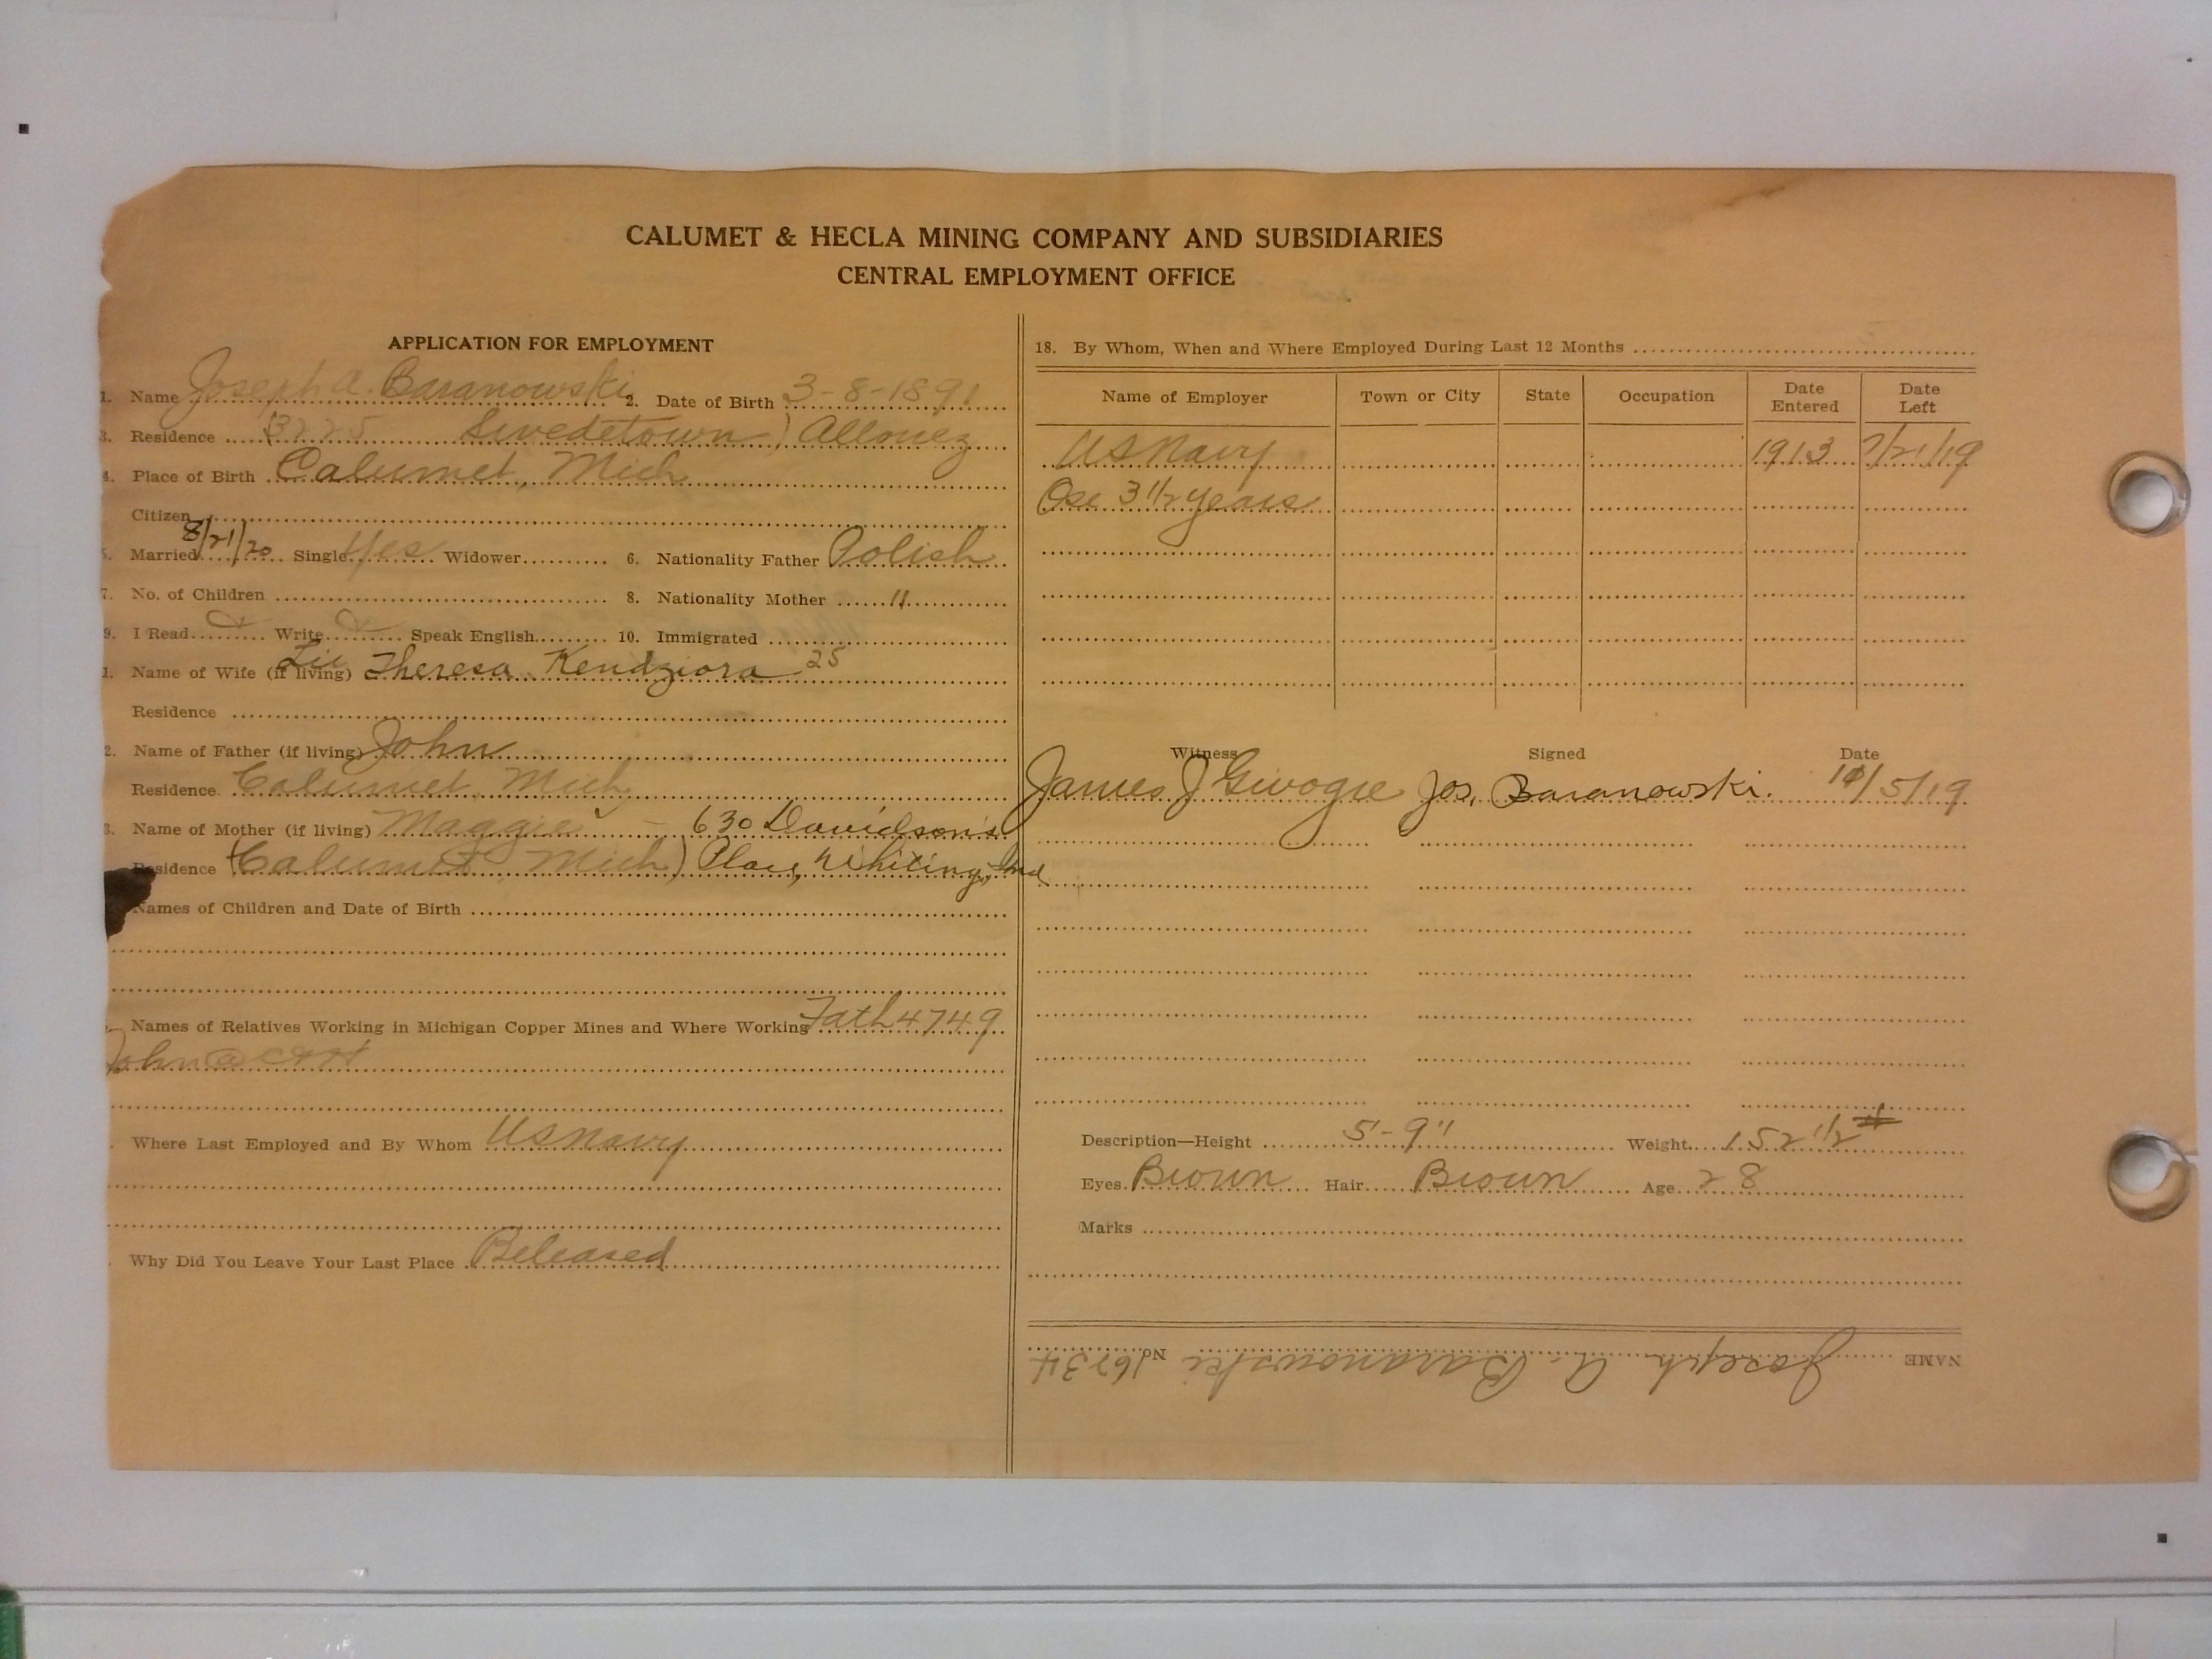 CALUMET & HECLA MINING COMPANY AND SUBSIDIARIES
CENTRAL EMPLOYMENT OFFICE
APPLICATION FOR EMPLOYMENT
1. Name Joseph A. Baranowski 2. Date of Birth 3-8-1891
3. Residence (3225 Swedetown) Allouez
4. Place of Birth Calumet, Mich
Citizen
5. Married 8/21/20 Single Yes Widower 6. Nationality Father Polish
7. No. of Children 8. Nationality Mother "
9. I Read Write Speak English 10. Immigrated
1. Name of Wife (if living) Theresa Kendziora 25
Residence
2. Name of Father (if living) John
Residence Calumet, Mich
3. Name of Mother (if living) Maggie - 630 Davidson's
Residence (Calumet, Mich) Place, Whiting, Ind
Names of Children and Date of Birth
Names of Relatives Working in Michigan Copper Mines and Where Working Fath 4749
John @ C&H
Where Last Employed and By Whom US Navy
Why Did You Leave Your Last Place Released
18. By Whom, When and Where Employed During Last 12 Months
Name of Employer Town or City State Occupation Date Entered Date Left
US Navy 1913 7/21/19
Osc 3 1/2 years
Witness Signed Date
James J Jos. Baranowski. /5/19
Description—Height 5'-9" Weight 152 1/2 #
Eyes Brown Hair Brown Age 28
Marks
NAME Joseph A. Baranowski No. 16734